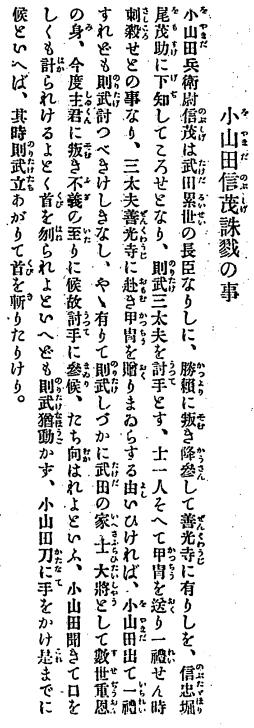 小山田信茂誅戮の事
小山田兵衛尉信茂は武田累世の長臣なりしに、勝頼に叛き降參して善光寺に有りしを、信忠堀
尾茂助に下知してころせとなり、則武三太夫を討手とす、士一人そへて甲冑を送り一禮せん時
刺殺せとの事なり、三太夫善光寺に赴き甲冑を贈りまゐらする由いひければ、小山田出て一禮
すれども則武討つべきけしきなし、やゝ有りて則武しづかに武田の家の士大將として數世重恩
の身、今度主君に叛き不義の至りに候故討手に參候、たち向はれよといふ、小山田聞きて口を
しくも計られけるよとく首を刎られよといへども則武猶動かず、小山田刀に手をかけ是までに
候といへば、其時則武立あがりて首を斬りたりけり。